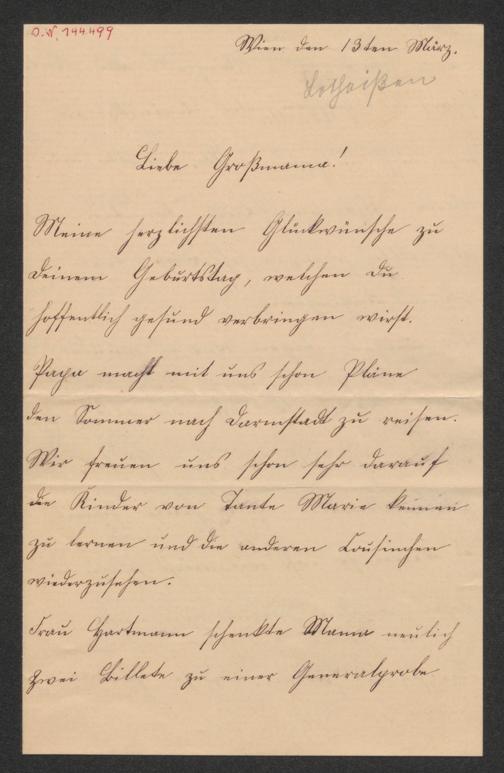 O.N. 144.499
Wien den 13ten März.
Lotheißen
Liebe Großmama!
Meine herzlichsten Glückwünsche zu
Deinem Geburtstag, welchen Du
hoffentlich gesund verbringen wirst.
Papa macht mit uns schon Pläne
den Sommer nach Darmstadt zu reisen.
Wir freuen uns schon sehr darauf
die Kinder von Tante Marie kennen
zu lernen und die anderen Cousinchen
wiederzusehen.
Frau Hartmann schenkte Mama neulich
zwei Billete zu einer Generalprobe